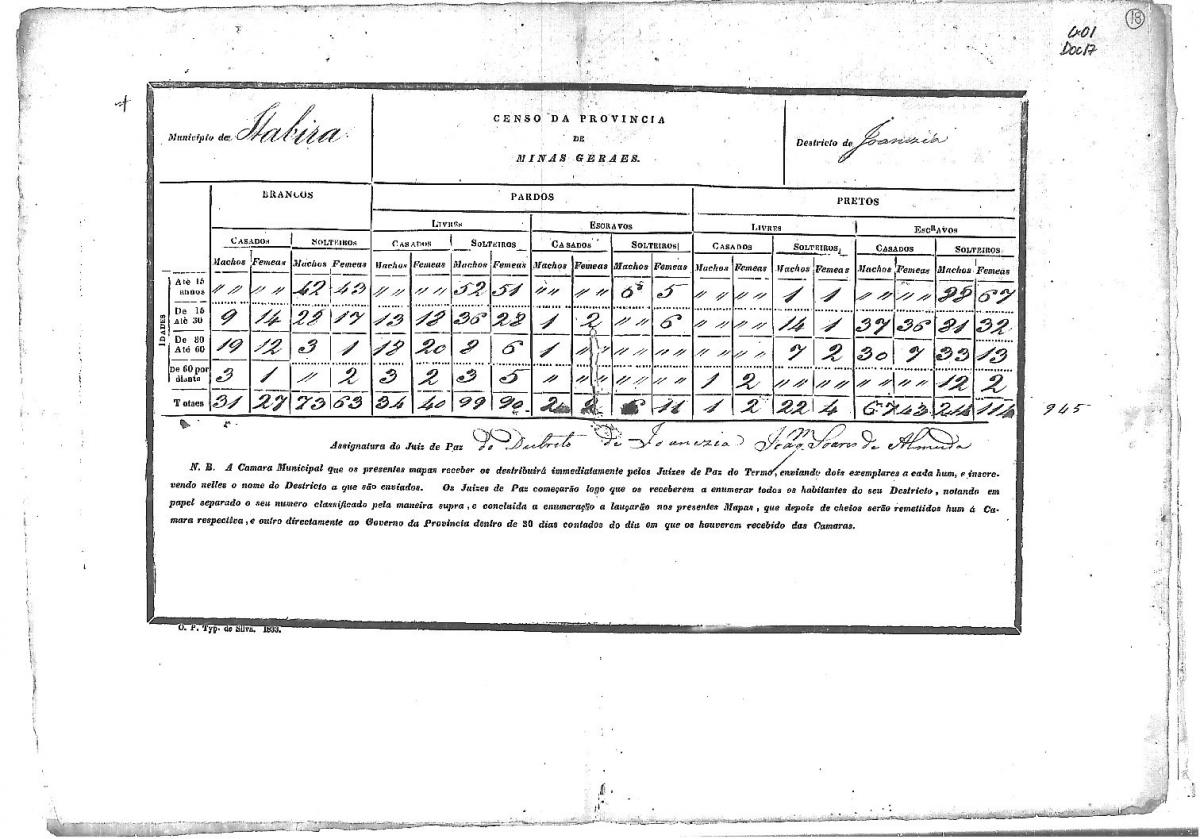 18
G01
Doc17
Municipio de Itabira
CENSO DA PROVINCIA
DE
MINAS GERAES.
Destricto de Joanezia
BRANCOS PARDOS PRETOS
LIVRES ESCRAVOS LIVRES ESCRAVOS
CASADOS SOLTEIROS CASADOS SOLTEIROS CASADOS SOLTEIROS CASADOS SOLTEIROS CASADOS SOLTEIROS
Machos Femeas Machos Femeas Machos Femeas Machos Femeas Machos Femeas Machos Femeas Machos Femeas Machos Femeas Machos Femeas Machos Femeas
IDADES
Atè 15 annos " " " " 42 43 " " " " 52 51 " " " " 6 5 " " " " 1 1 " " " " 88 67
De 15 Atè 30 9 14 28 17 13 18 36 28 1 2 " " 6 " " " " 14 1 37 36 81 32
De 30 Até 60 19 12 3 1 18 20 8 6 1 " " " " " " " " " " 7 2 30 7 33 13
De 60 por diante 3 1 " 2 3 2 3 5 " " " " " " " 1 2 " " " " " " " " 12 2
Totaes 31 27 73 63 34 40 99 90 2 2 6 11 1 2 22 4 67 43 214 114 945
Assignatura do Juiz de Paz do Destricto de Joanezia Joaq.m Soares de Almeida
N. B. A Camara Municipal que os presentes mapas receber os destribuirá immediatamente pelos Juizes de Paz do Termo, enviando dois exemplares a cada hum, e inscre-
vendo nelles o nome do Destricto a que são enviados. Os Juizes de Paz começarão logo que os receberem a enumerar todos os habitantes do seu Destricto, notando em
papel separado o seu numero classificado pela maneira supra, e concluida a enumeração a lançarão nos presentes Mapas, que depois de cheios serão remettidos hum á Ca-
mara respectiva, e outro directamente ao Governo da Provincia dentro de 30 dias contados do dia em que os houverem recebido das Camaras.
O. P. Typ. de Silva. 1833.